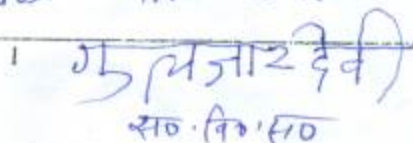 गुलजार देवी
स०.वि०.स०